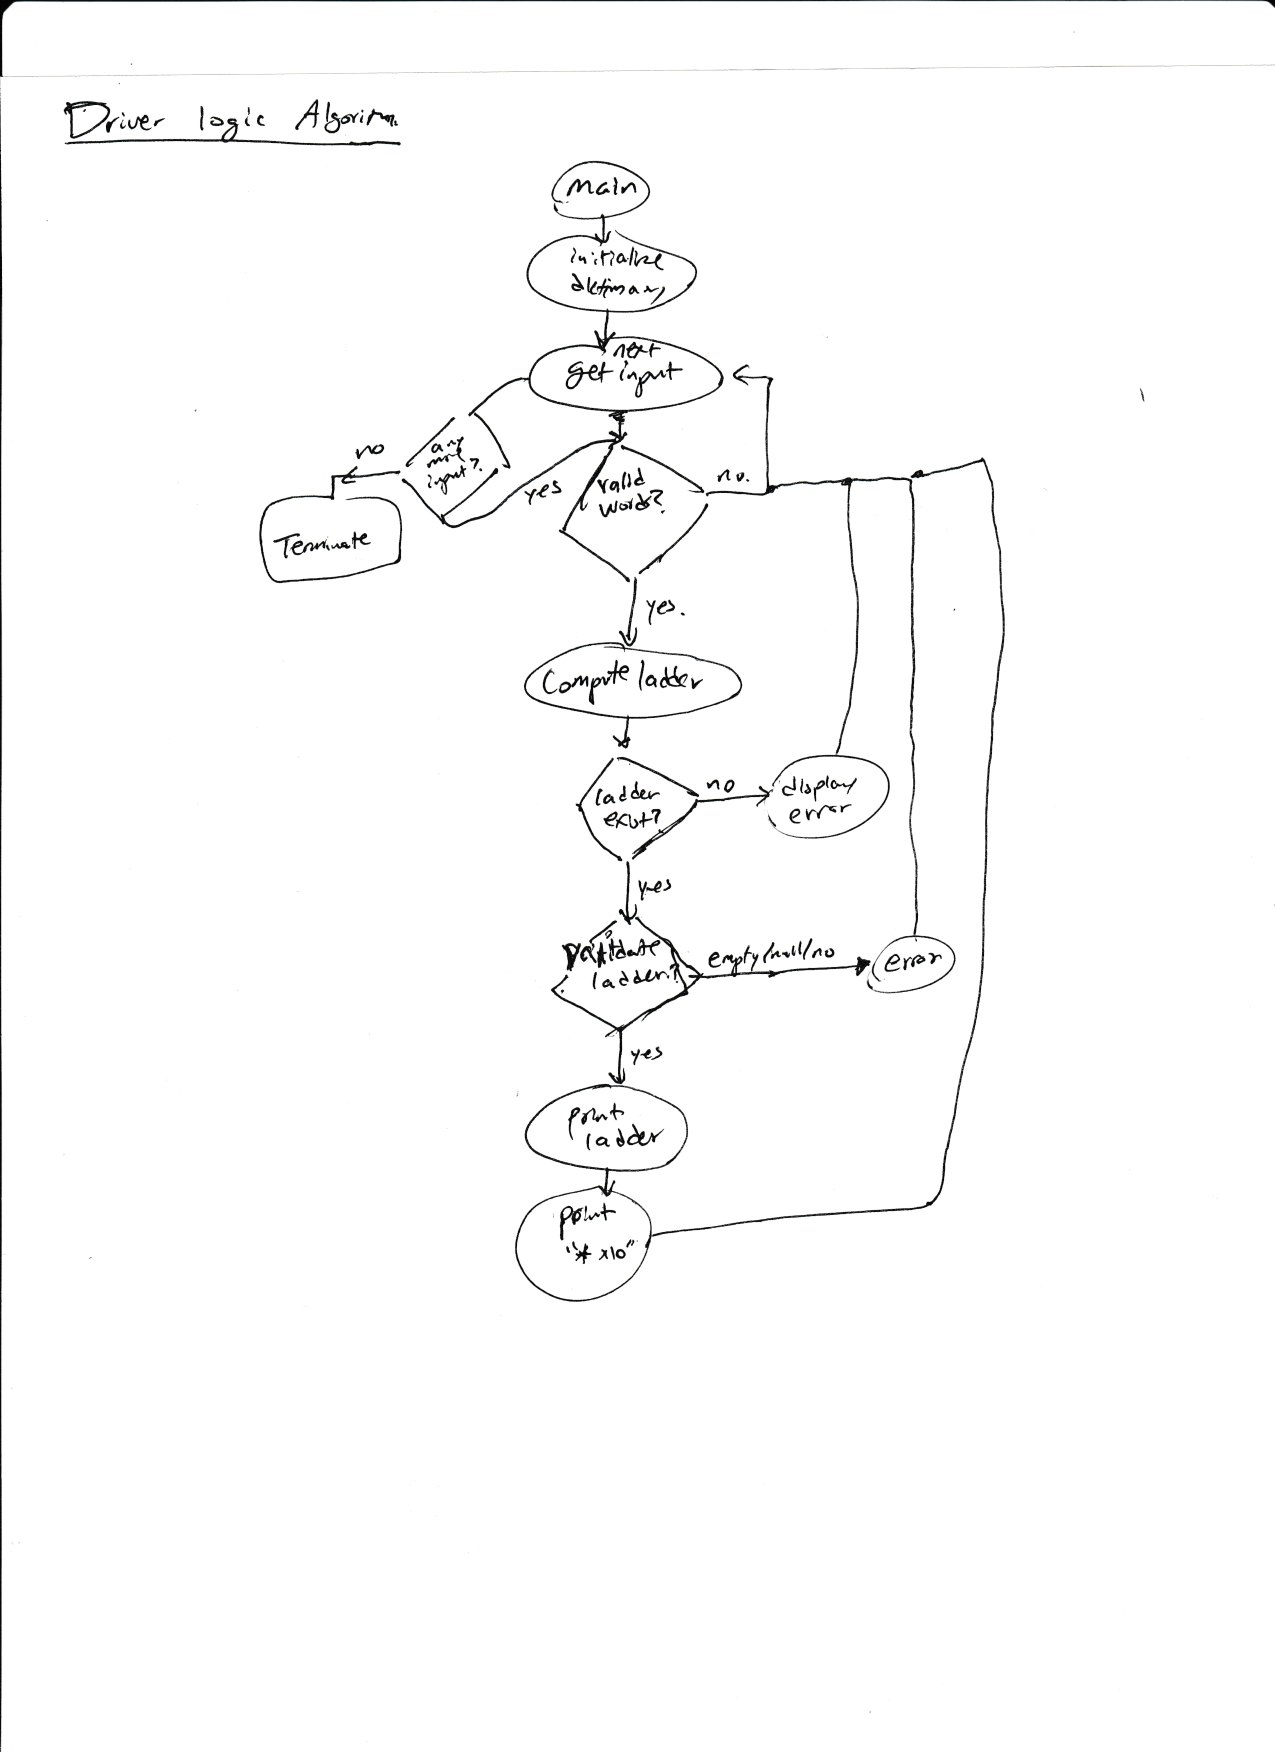 Driver logic Algorithm
main
initialize
dictionary
next
get input
any
more
input?
no
yes
Terminate
valid
words?
no.
yes.
Compute ladder
ladder
exist?
no
display
error
yes
Validate
ladder?
empty/null/no
error
yes
print
ladder
print
"* x10"